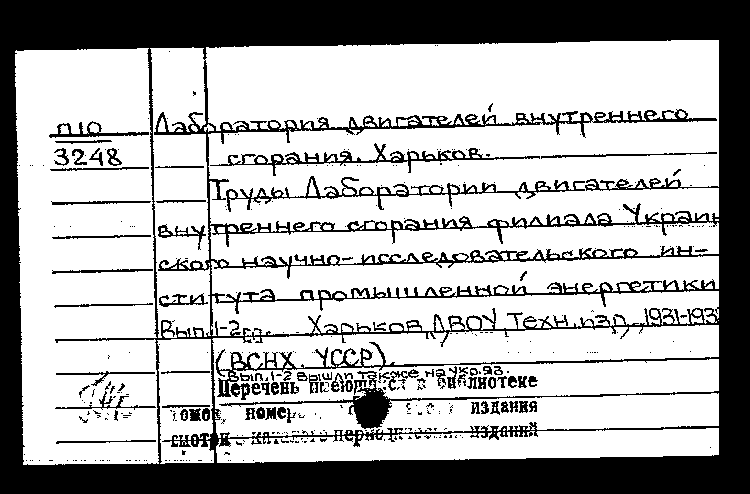 П10 Лаборатория двигателей внутреннего
3248 сгорания. Харьков.
Труды Лаборатории двигателей
внутреннего сгорания филиала Украин
ского научно-исследовательского ин-
ститута промышленной энергетики
Вып. 1-2 Харьков, ДВОУ, Техн. изд., 1931-193
(ВСНХ. УССР).
Вып. 1-2 вышли также на укр. яз.
Перечень имеющихся в библиотеке
томов, номер издания
смотри каталоге периодических изданий